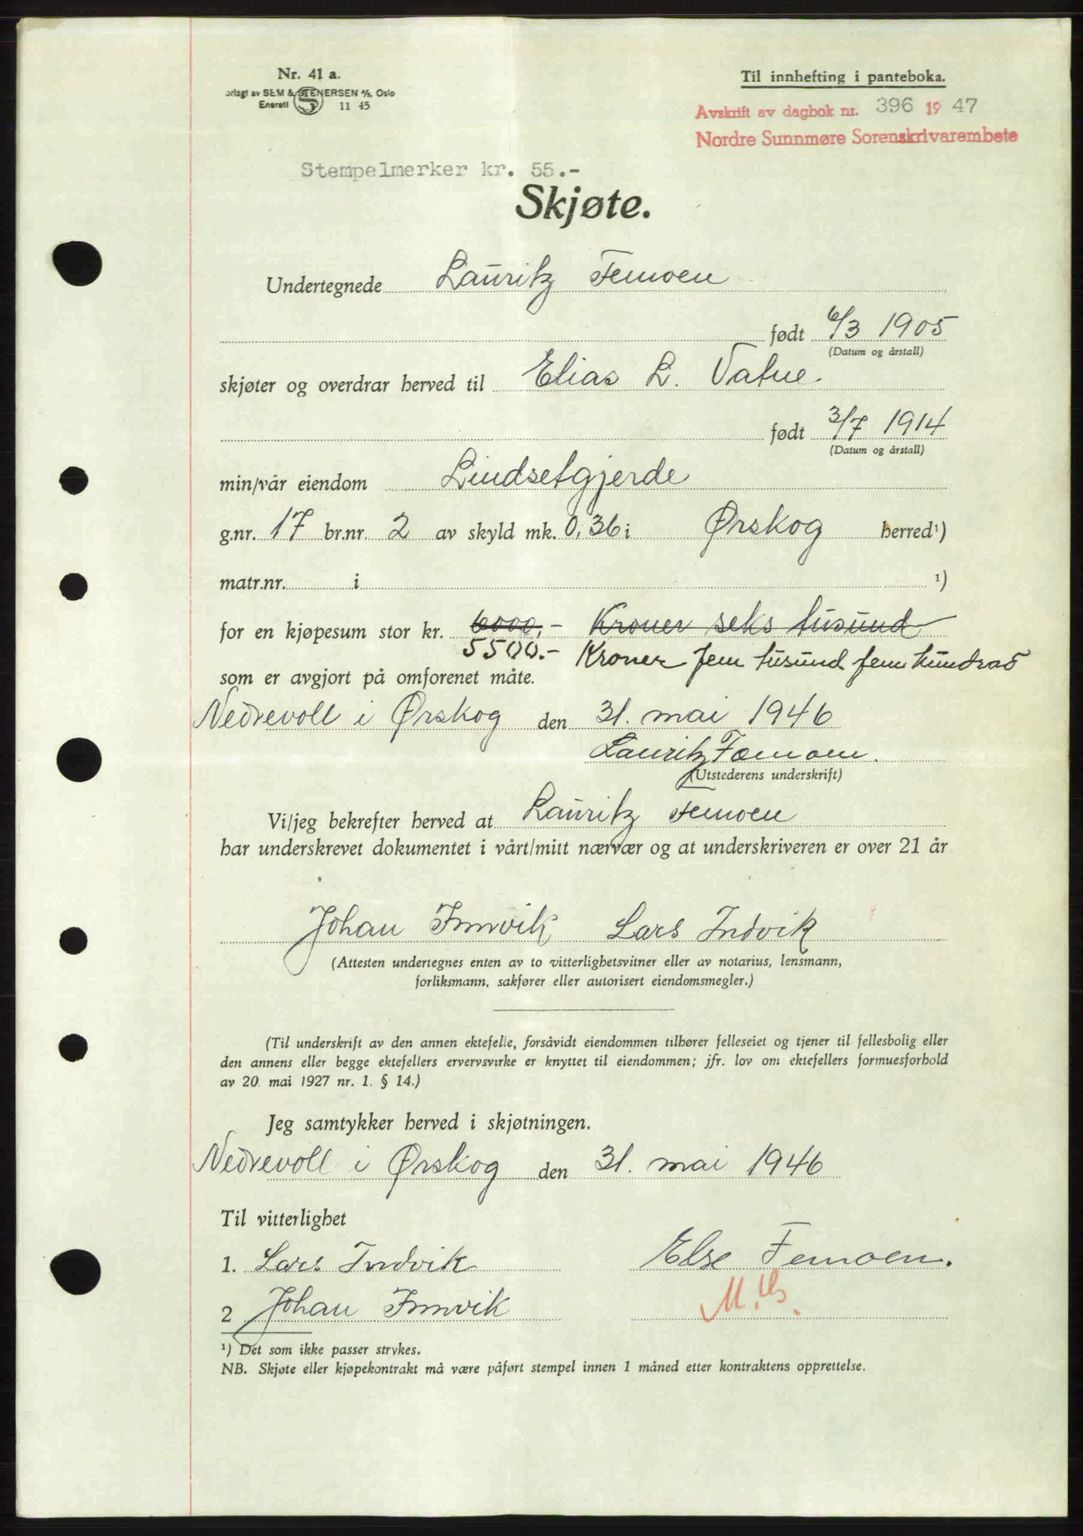 Nr. 41 a.
orlagt av SEM & STENERSEN A/S, Oslo
Enerett S 11 45
Til innhefting i panteboka.
Avskrift av dagbok nr. 396 19 47
Nordre Sunnmøre Sorenskrivarembete
Stempelmerker kr. 55.-
Skjøte.
Undertegnede Lauritz Femoen
født 6/3 1905
(Datum og årstall)
skjøter og overdrar herved til Elias L. Vatne.
født 3/7 1914
(Datum og årstall)
min/vår eiendom Lindsetgjerde
g.nr. 17 br.nr. 2 av skyld mk. 0,36 i Ørskog herred¹)
matr.nr. i ¹)
for en kjøpesum stor kr. 6000,- Kroner seks tusund
5500.- Kroner fem tusund fem hundrad
som er avgjort på omforenet måte.
Nedrevoll i Ørskog den 31. mai 1946
Lauritz Femoen.
(Utstederens underskrift)
Vi/jeg bekrefter herved at Lauritz Femoen
har underskrevet dokumentet i vårt/mitt nærvær og at underskriveren er over 21 år
Johan Innvik Lars Indvik
(Attesten undertegnes enten av to vitterlighetsvitner eller av notarius, lensmann,
forliksmann, sakfører eller autorisert eiendomsmegler.)
(Til underskrift av den annen ektefelle, forsåvidt eiendommen tilhører felleseiet og tjener til fellesbolig eller
den annens eller begge ektefellers ervervsvirke er knyttet til eiendommen; jfr. lov om ektefellers formuesforhold
av 20. mai 1927 nr. 1. § 14.)
Jeg samtykker herved i skjøtningen.
Nedrevoll i Ørskog den 31. mai 1946
Til vitterlighet
1. Lars Indvik Else Femoen.
2 Johan Innvik
¹) Det som ikke passer strykes.
NB. Skjøte eller kjøpekontrakt må være påført stempel innen 1 måned etter kontraktens opprettelse.